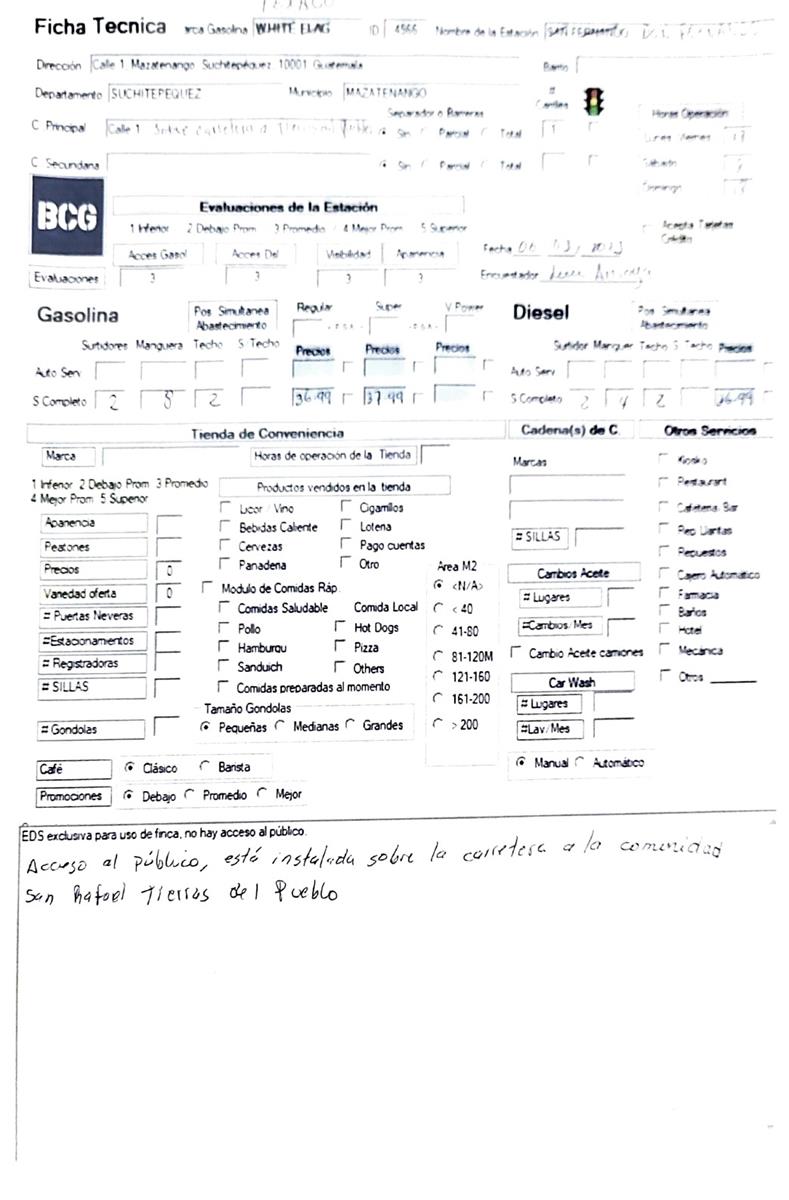 TEXACO
Ficha Tecnica arca Gasolina WHITE FLAG ID 4566 Nombre de la Estación SAN FERNANDO DON FERNANDO
Dirección Calle 1 Mazatenango Suchitepéquez 10001 Guatemala Barrio
Departamento SUCHITEPEQUEZ Municipio MAZATENANGO # Carriles
Separador o Barreras Horas Operación
C Principal Calle 1 Sobre carretera a Tierras del Pueblo Sin Parcial Total 1 Lunes Viernes
C Secundaria Sin Parcial Total Sábado
Domingo
BCG
Evaluaciones de la Estación
1 Inferior 2 Debajo Prom 3 Promedio 4 Mejor Prom 5 Superior Acepta Tarjetas Crédito
Acces Gasol Acces Del Visibilidad Apariencia Fecha 06/03/2023
Evaluaciones 3 3 3 3 Encuestador
Gasolina Pos Simultanea Abastecimiento Regular Super V Power Diesel Pos Simultanea Abastecimiento
Surtidores Manguera Techo S Techo Precios Precios Precios Surtidor Manguer Techo S Techo Precios
Auto Serv Auto Serv
S Completo 2 8 2 36.99 37.99 S Completo 2 4 2 26.99
Tienda de Conveniencia Cadena(s) de C. Otros Servicios
Marca Horas de operación de la Tienda Marcas Kiosko
1 Inferior 2 Debajo Prom 3 Promedio Productos vendidos en la tienda Restaurant
4 Mejor Prom 5 Superior Licor / Vino Cigarrillos Cafeteria Bar
Apariencia Bebidas Caliente Loteria Rep Llantas
Peatones Cervezas Pago cuentas # SILLAS Repuestos
Precios 0 Panaderia Otro Area M2 Cambios Aceite Cajero Automático
Variedad oferta 0 Modulo de Comidas Ráp. <N/A> # Lugares Farmacia
# Puertas Neveras Comidas Saludable Comida Local < 40 Baños
#Estacionamentos Pollo Hot Dogs 41-80 #Cambios/Mes Hotel
# Registradoras Hamburqu Pizza 81-120M Cambio Aceite camiones Mecánica
# SILLAS Sanduich Others 121-160 Car Wash Otros
Comidas preparadas al momento 161-200 # Lugares
Tamaño Gondolas
# Gondolas Pequeñas Medianas Grandes > 200 #Lav/Mes
Café Clásico Barista Manual Automático
Promociones Debajo Promedio Mejor
EDS exclusiva para uso de finca, no hay acceso al público.
Acceso al público, está instalada sobre la carretera a la comunidad
San Rafael Tierras del Pueblo